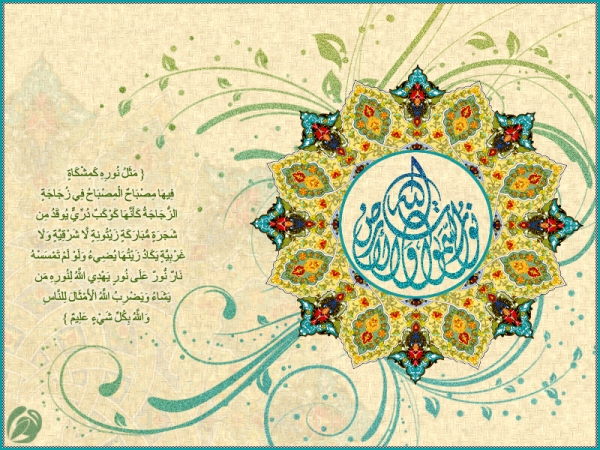 الله نور السموات والأرض
{ مَثَلُ نُورِهِ كَمِشْكَاةٍ
فِيهَا مِصْبَاحٌ الْمِصْبَاحُ فِي زُجَاجَةٍ
الزُّجَاجَةُ كَأَنَّهَا كَوْكَبٌ دُرِّيٌّ يُوقَدُ مِن
شَجَرَةٍ مُّبَارَكَةٍ زَيْتُونِةٍ لَّا شَرْقِيَّةٍ وَلَا
غَرْبِيَّةٍ يَكَادُ زَيْتُهَا يُضِيءُ وَلَوْ لَمْ تَمْسَسْهُ
نَارٌ نُّورٌ عَلَى نُورٍ يَهْدِي اللَّهُ لِنُورِهِ مَن
يَشَاءُ وَيَضْرِبُ اللَّهُ الْأَمْثَالَ لِلنَّاسِ
وَاللَّهُ بِكُلِّ شَيْءٍ عَلِيمٌ }